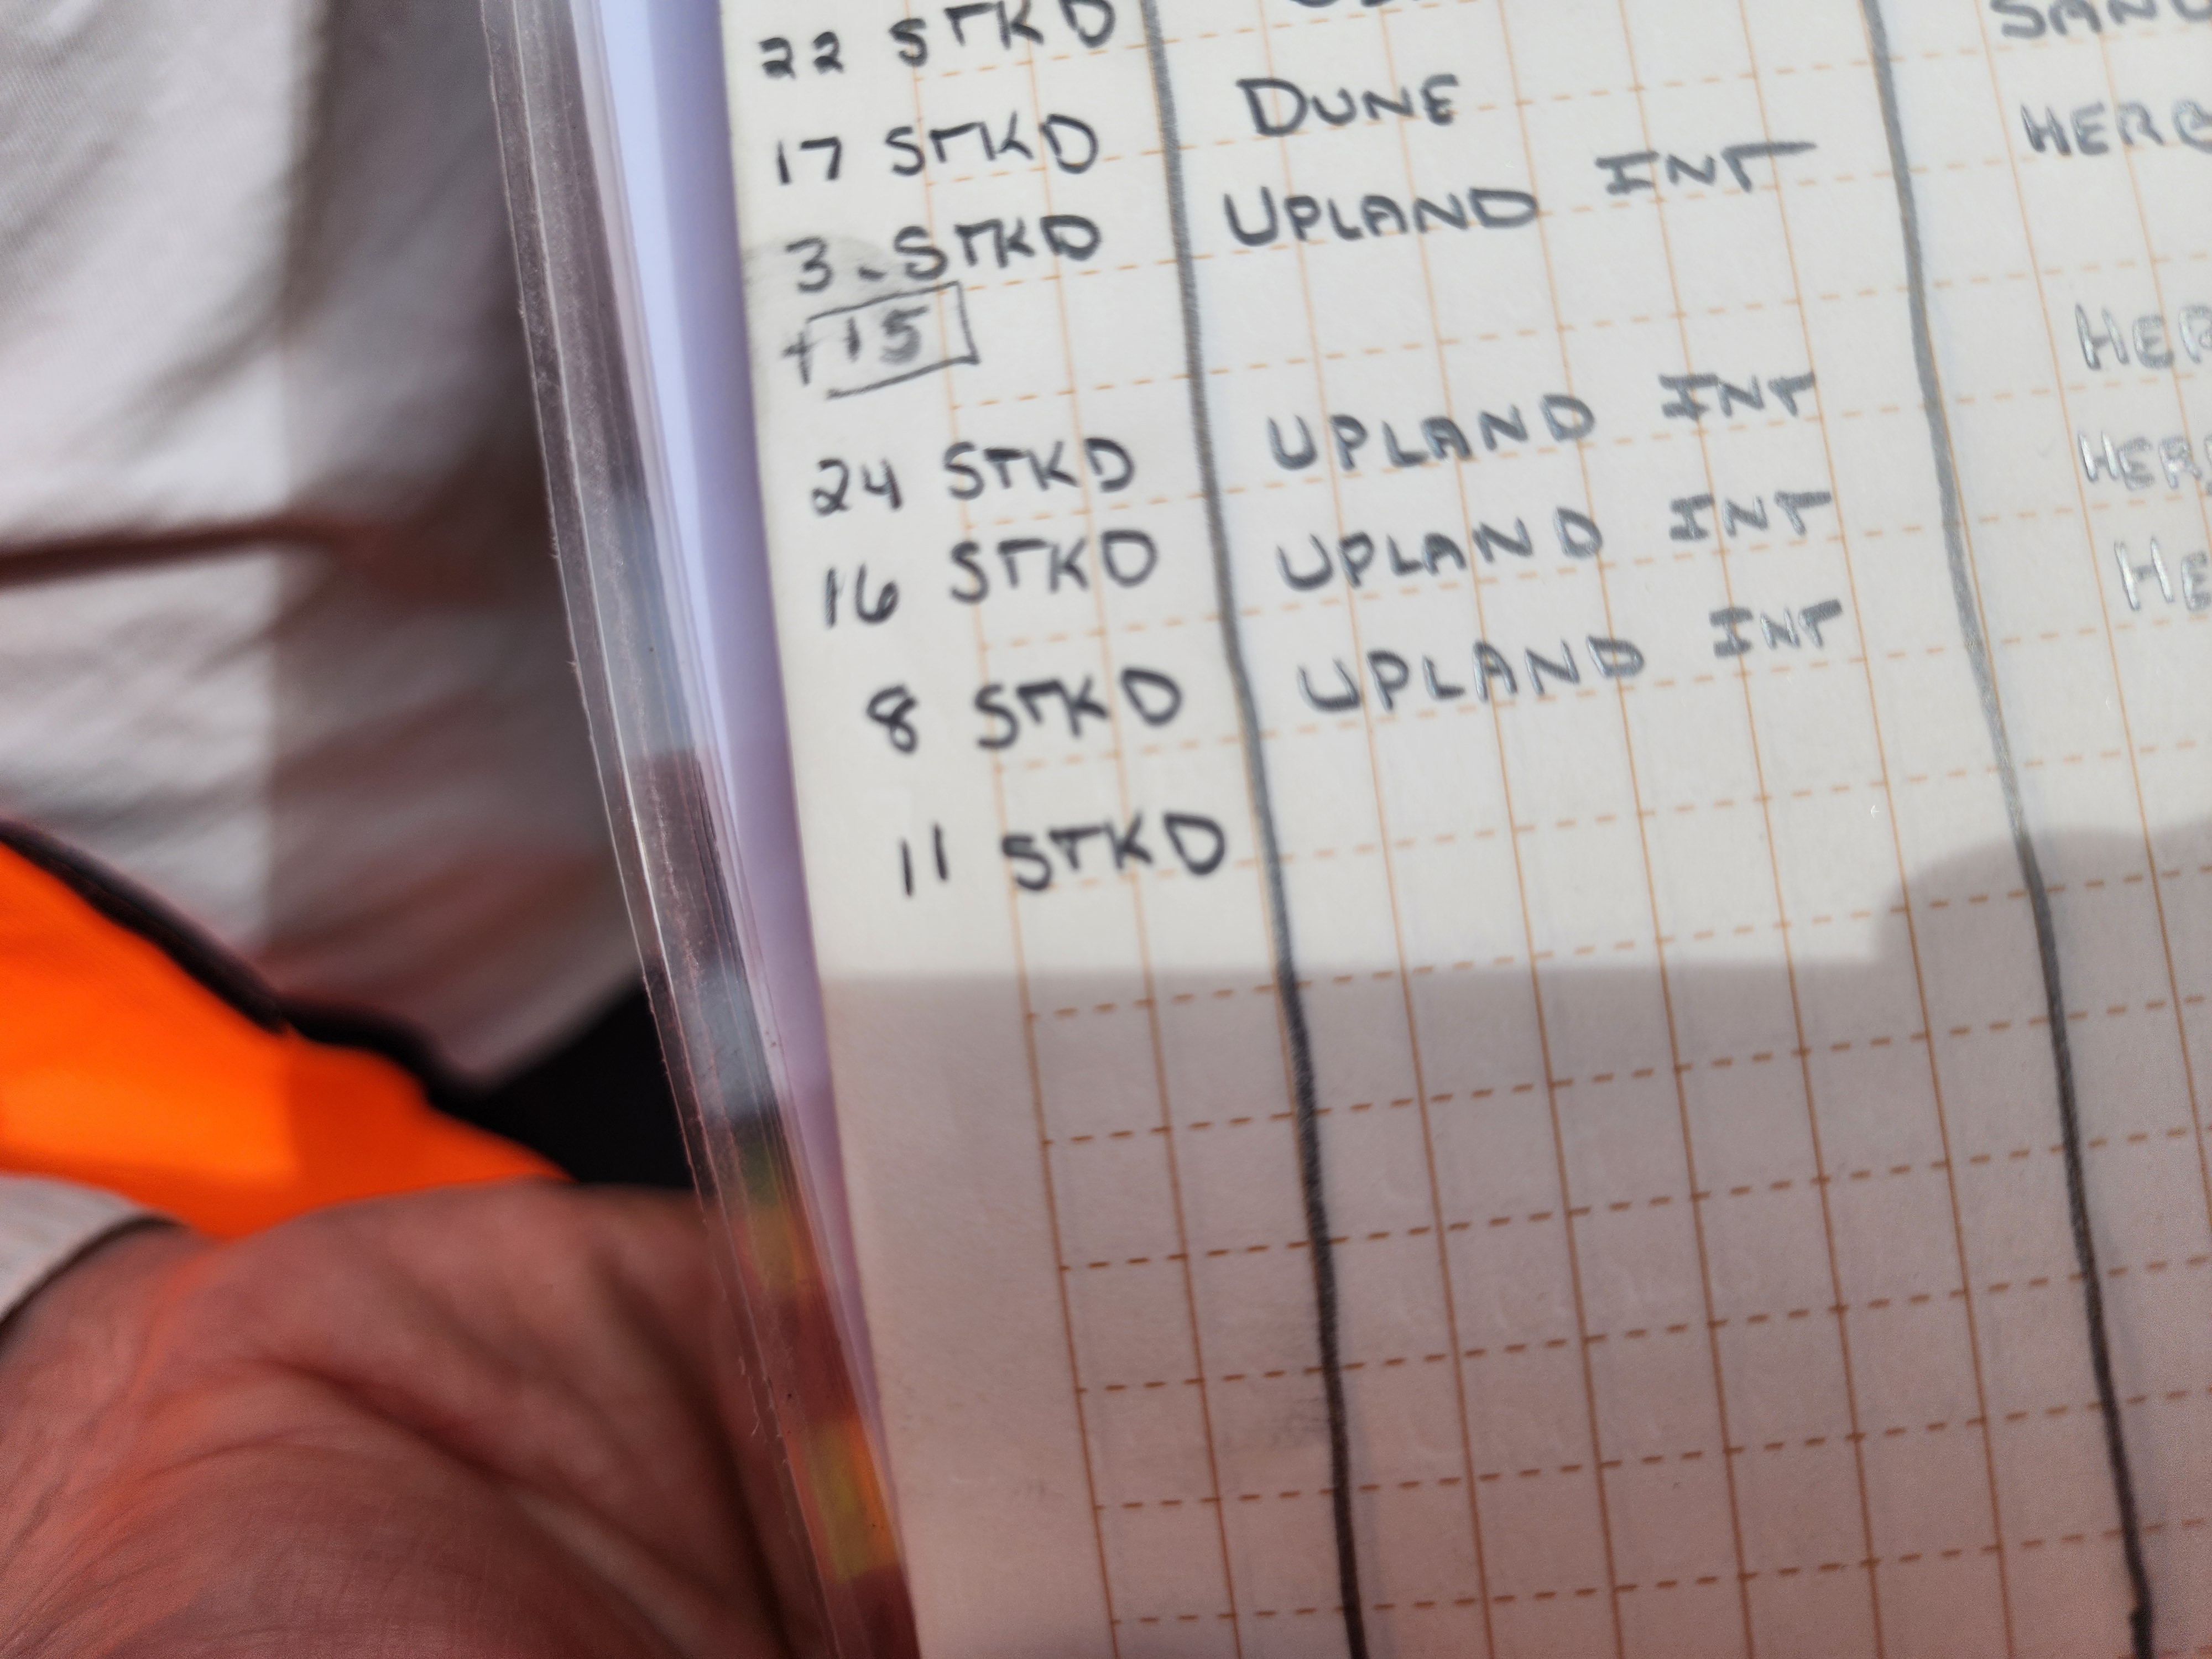 22 STKD
SAND
17 STKD DUNE HERB
3. STKD UPLAND INT
+15
24 STKD UPLAND INT HER
16 STKD UPLAND INT HER
8 STKD UPLAND INT HE
11 STKD